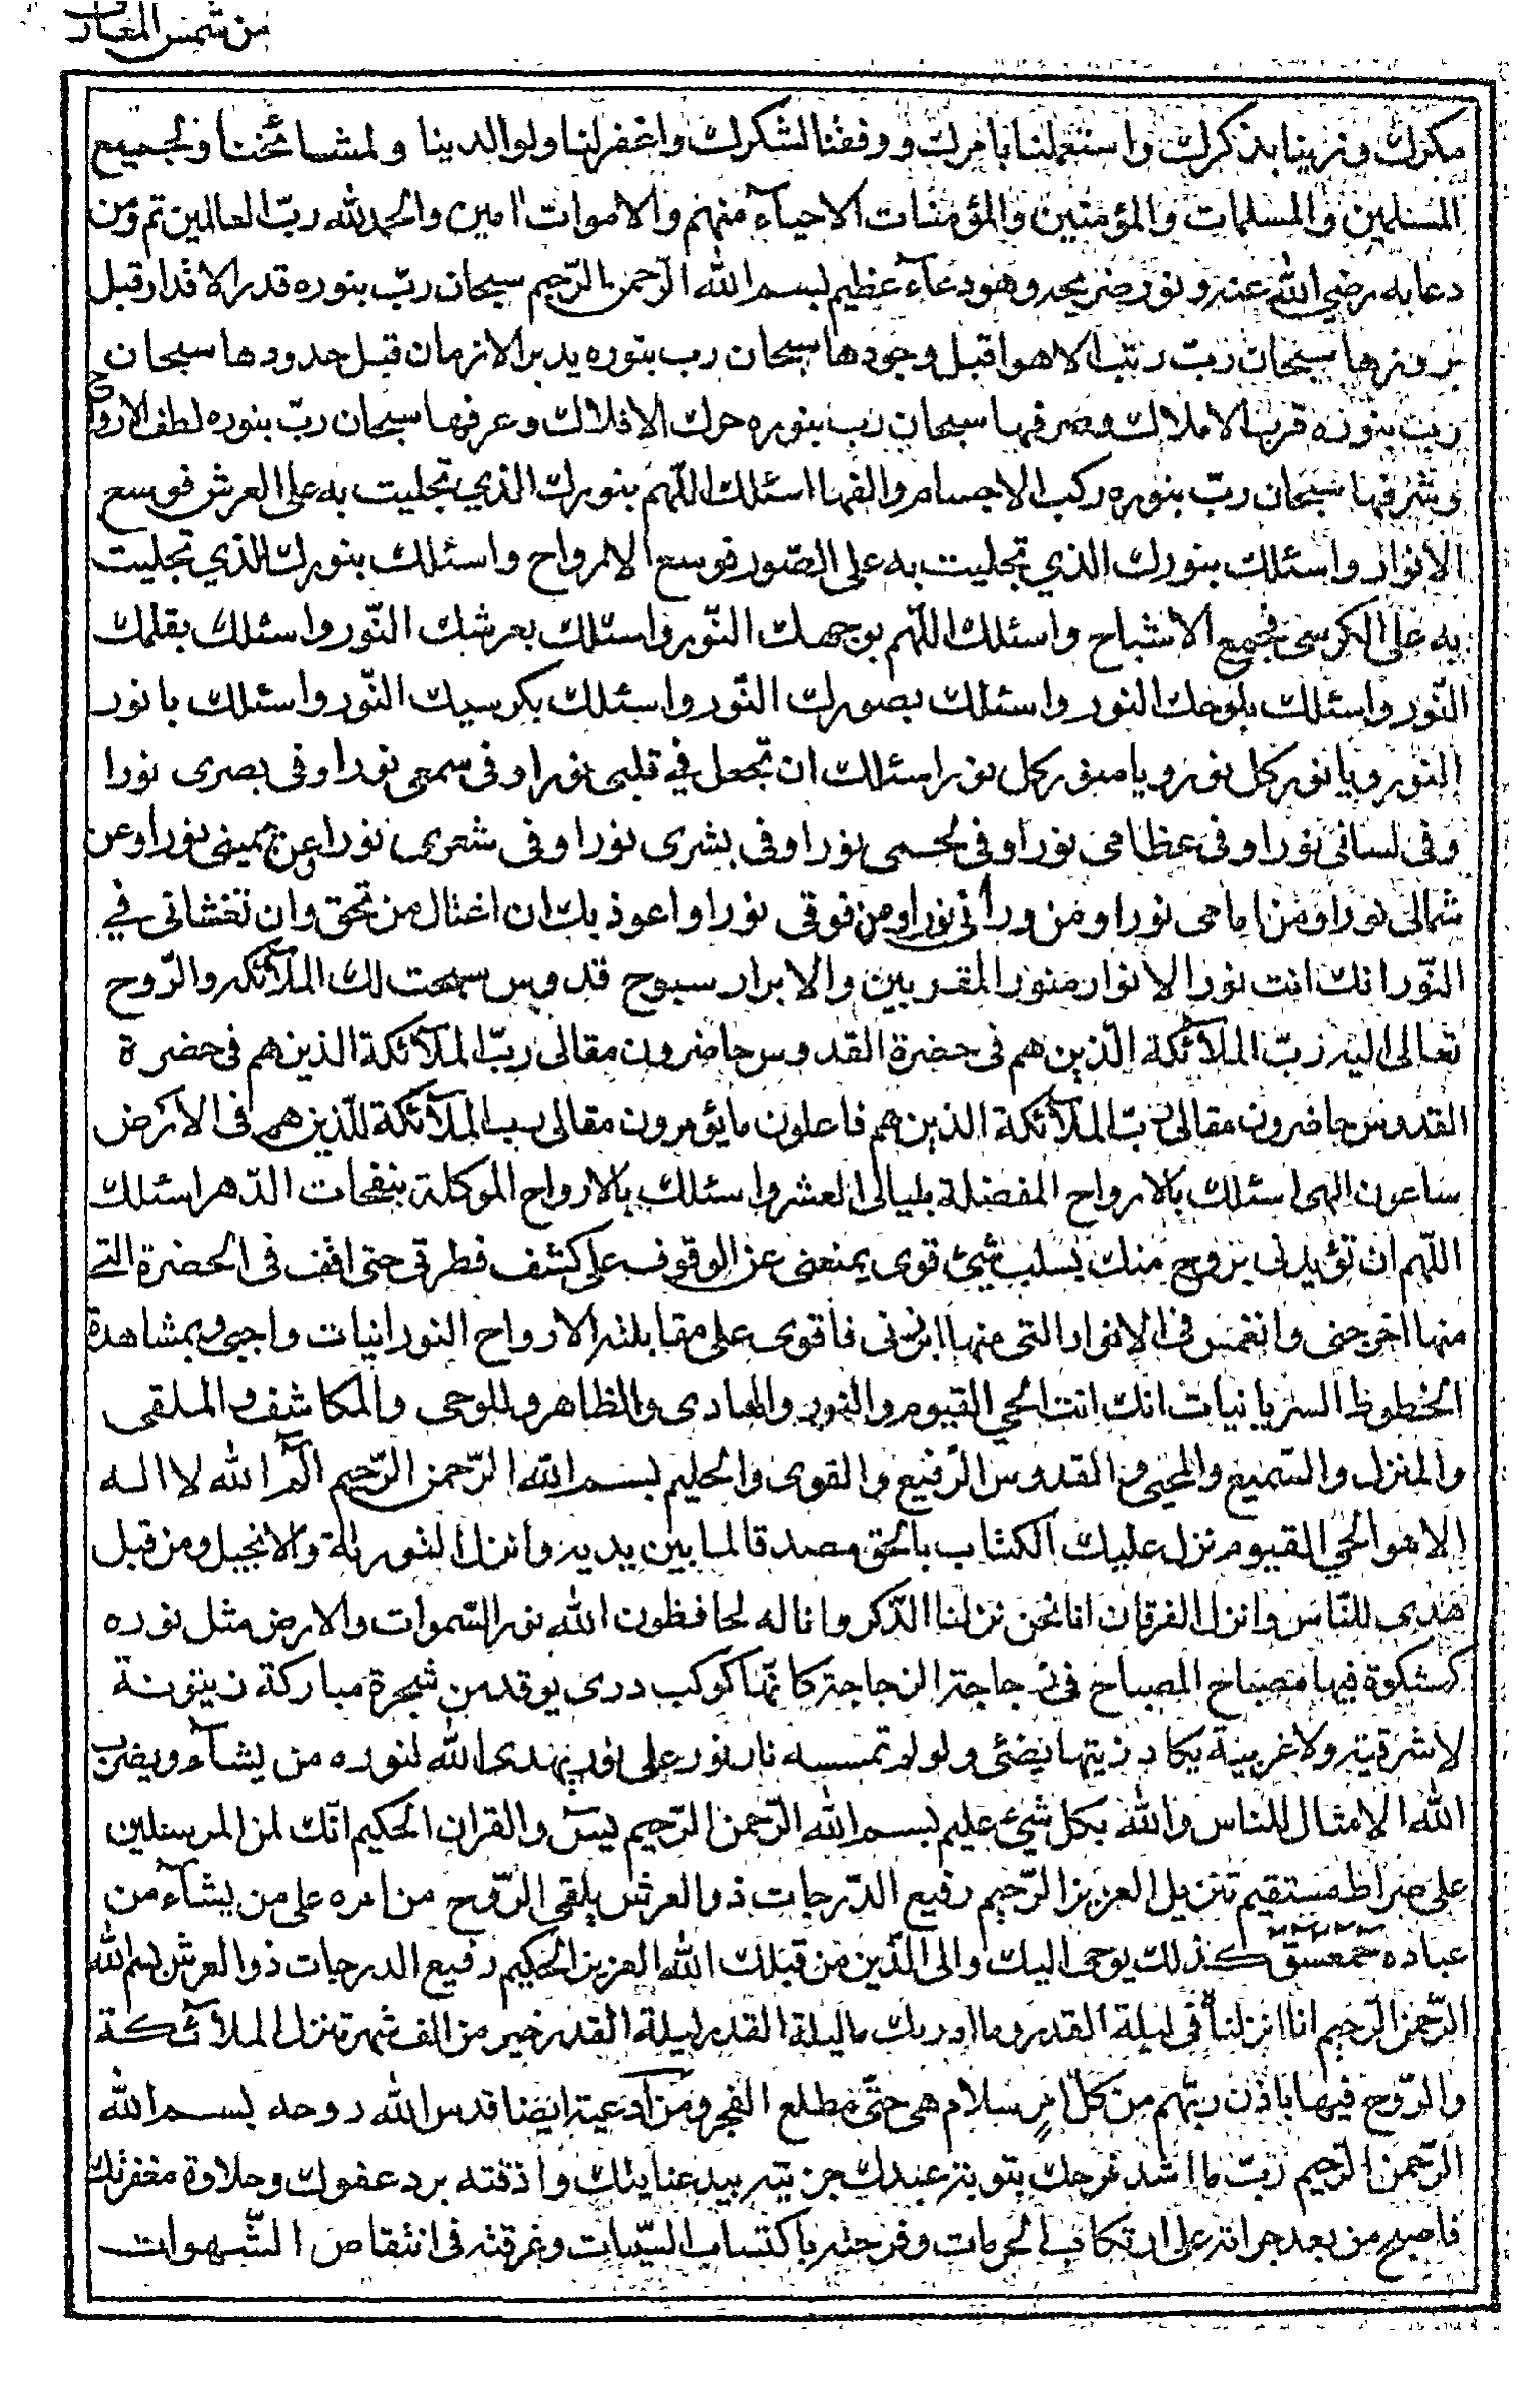 من شمس المعارف
مكرك وزينا بذكرك واستعملنا بامرك ووفقنا لشكرك واغفر لنا ولوالدينا ولمشائخنا ولجميع
المسلمين والمسلمات والمؤمنين والمؤمنات الاحيآء منهم والاموات امين والحمد لله ربّ العالمين تم ومن
دعا به رضي الله عنه ونور ضريحه وهو دعآء عظيم بسم الله الرّحمن الرّحيم سبحان ربّ بنوره قدر الاقدار قبل
بروزها سبحان ربّ رتب الاهوا قبل وجودها سبحان رب بنوره يدبر الازمان قبل حدودها سبحان
ربّ بنوره قرب الاملاك وصرفها سبحان رب بنوره حرك الافلاك وعرفها سبحان ربّ بنوره لطف الارواح
وشرفها سبحان ربّ بنوره ركب الاجسام والفها اسئلك اللّهم بنورك الذي تجليت به على العرش فوسع
الانوار واسئلك بنورك الذي تجليت به على الصّور فوسع الارواح واسئلك بنورك الذي تجليت
به على الكرسى فجمع الاشباح واسئلك اللّهم بوجهك النّور واسئلك بعرشك النّور واسئلك بقلمك
النّور واسئلك بلوحك النور واسئلك بصورك النّور واسئلك بكرسيك النّور واسئلك يا نور
النور ويا نور كل نور ويا منور كل نور اسئلك ان تجعل في قلبى نورا وفى سمعى نورا وفى بصرى نورا
وفى لسانى نورا وفى عظامى نورا وفى لحمى نورا وفى بشرى نورا وفى شعرى نورا وعن يمينى نورا وعن
شمالى نورا ومن امامى نورا ومن ورائى نورا ومن فوقى نورا واعوذ بك ان اغتال من تحتى وان تغشانى في
النّور انك انت نور الانوار منور المقربين والابرار سبوح قدوس سبحت لك الملآئكه والرّوح
تعالى اليه ربّ الملآئكة الّذين هم فى حضرة القدوس حاضرون مقالى ربّ الملآئكة الذين هم فى حضرة
القدوس حاضرون مقالى ربّ الملآئكة الذين هم فاعلون ما يؤمرون مقالى رب الملآئكة للّذين هم فى الارض
ساعون الهى اسئلك بالارواح المفضلة بليالى العشر واسئلك بالارواح الموكلة بنفحات الدّهر اسئلك
اللّهم ان تؤيدنى بروح منك يسلب شئ قوى يمنعنى عن الوقوف على كشف فطرتى حتى اقف فى الحضرة التى
منها اخرجنى وانغمس فى الانوار التى منها ابرزنى فاقوى على مقابلة الارواح النورانيات واحيى بمشاهدة
الخطوظ السريانيات انك انت الحي القيوم والنور والهادى والظاهر وللوحى والمكاشف والملقى
والمنزل والسّميع والمحيى والقدوس الرّفيع والقوى والحليم بسم الله الرّحمن الرّحيم الٓم الله لا اله
الا هو الحي القيوم نزل عليك الكتاب بالحق مصدقا لما بين يديه وانزل التورىة والانجيل ومن قبل
هدى للنّاس وانزل الفرقان انا نحن نزلنا الذّكر وانا له لحافظون الله نور السّموات والارض مثل نوره
كمشكوة فيها مصباح المصباح فى زجاجة الزجاجة كانّها كوكب درى يوقد من شجرة مباركة زيتونة
لا شرقية ولا غربية يكاد زيتها يضئ ولو لم تمسسه نار نور على نور يهدى الله لنوره من يشآء ويضرب
الله الامثال للناس والله بكل شئ عليم بسم الله الرّحمن الرّحيم يسٓ والقران الحكيم انّك لمن المرسلين
على صراط مستقيم تنزيل العزيز الرّحيم رفيع الدّرجات ذو العرش يلقى الرّوح من امره على من يشآء من
عباده حٓمٓعٓسٓقٓ كذلك يوحى اليك والى الّذين من قبلك الله العزيز الحكيم رفيع الدرجات ذو العرش بسم الله
الرّحمن الرّحيم انا انزلناه فى ليلة القدر وما ادريك ما ليلة القدر ليلة القدر خير من الف شهر تنزل الملآئكة
والرّوح فيها باذن ربّهم من كلّ امرٍ سلام هى حتّى مطلع الفجر ومن ادعيته ايضا قدس الله روحه بسم الله
الرّحمن الرّحيم ربّ ما اشد فرحك بتوبة عبدك جربته بيد عنايتك واذقته برد عفوك وحلاوة مغفرتك
فاصبح من بعد جراته على ارتكاب الحرمات وفرحته باكتساب السّيئات وغرقته فى انتقاص الشّهوات